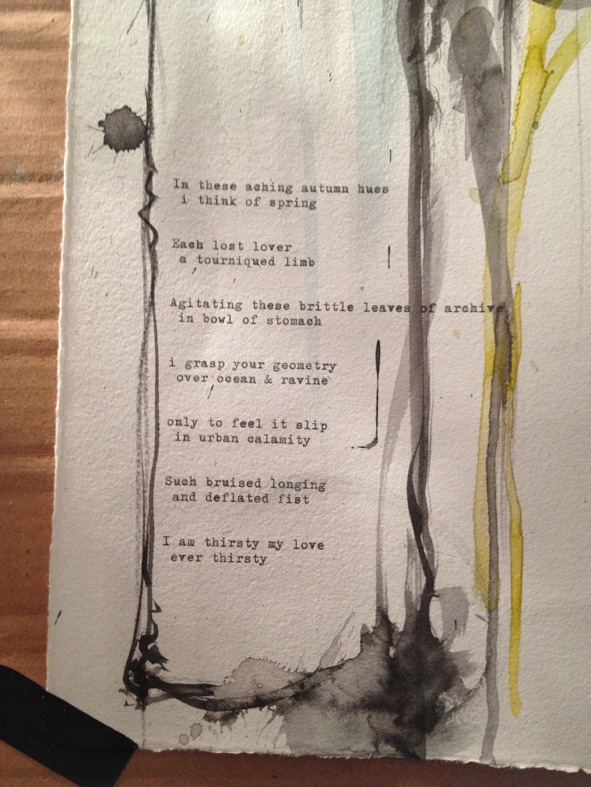 In these aching autumn hues
i think of spring
Each lost lover
a tourniqued limb
Agitating these brittle leaves of archive
in bowl of stomach
i grasp your geometry
over ocean & ravine
only to feel it slip
in urban calamity
Such bruised longing
and deflated fist
I am thirsty my love
ever thirsty